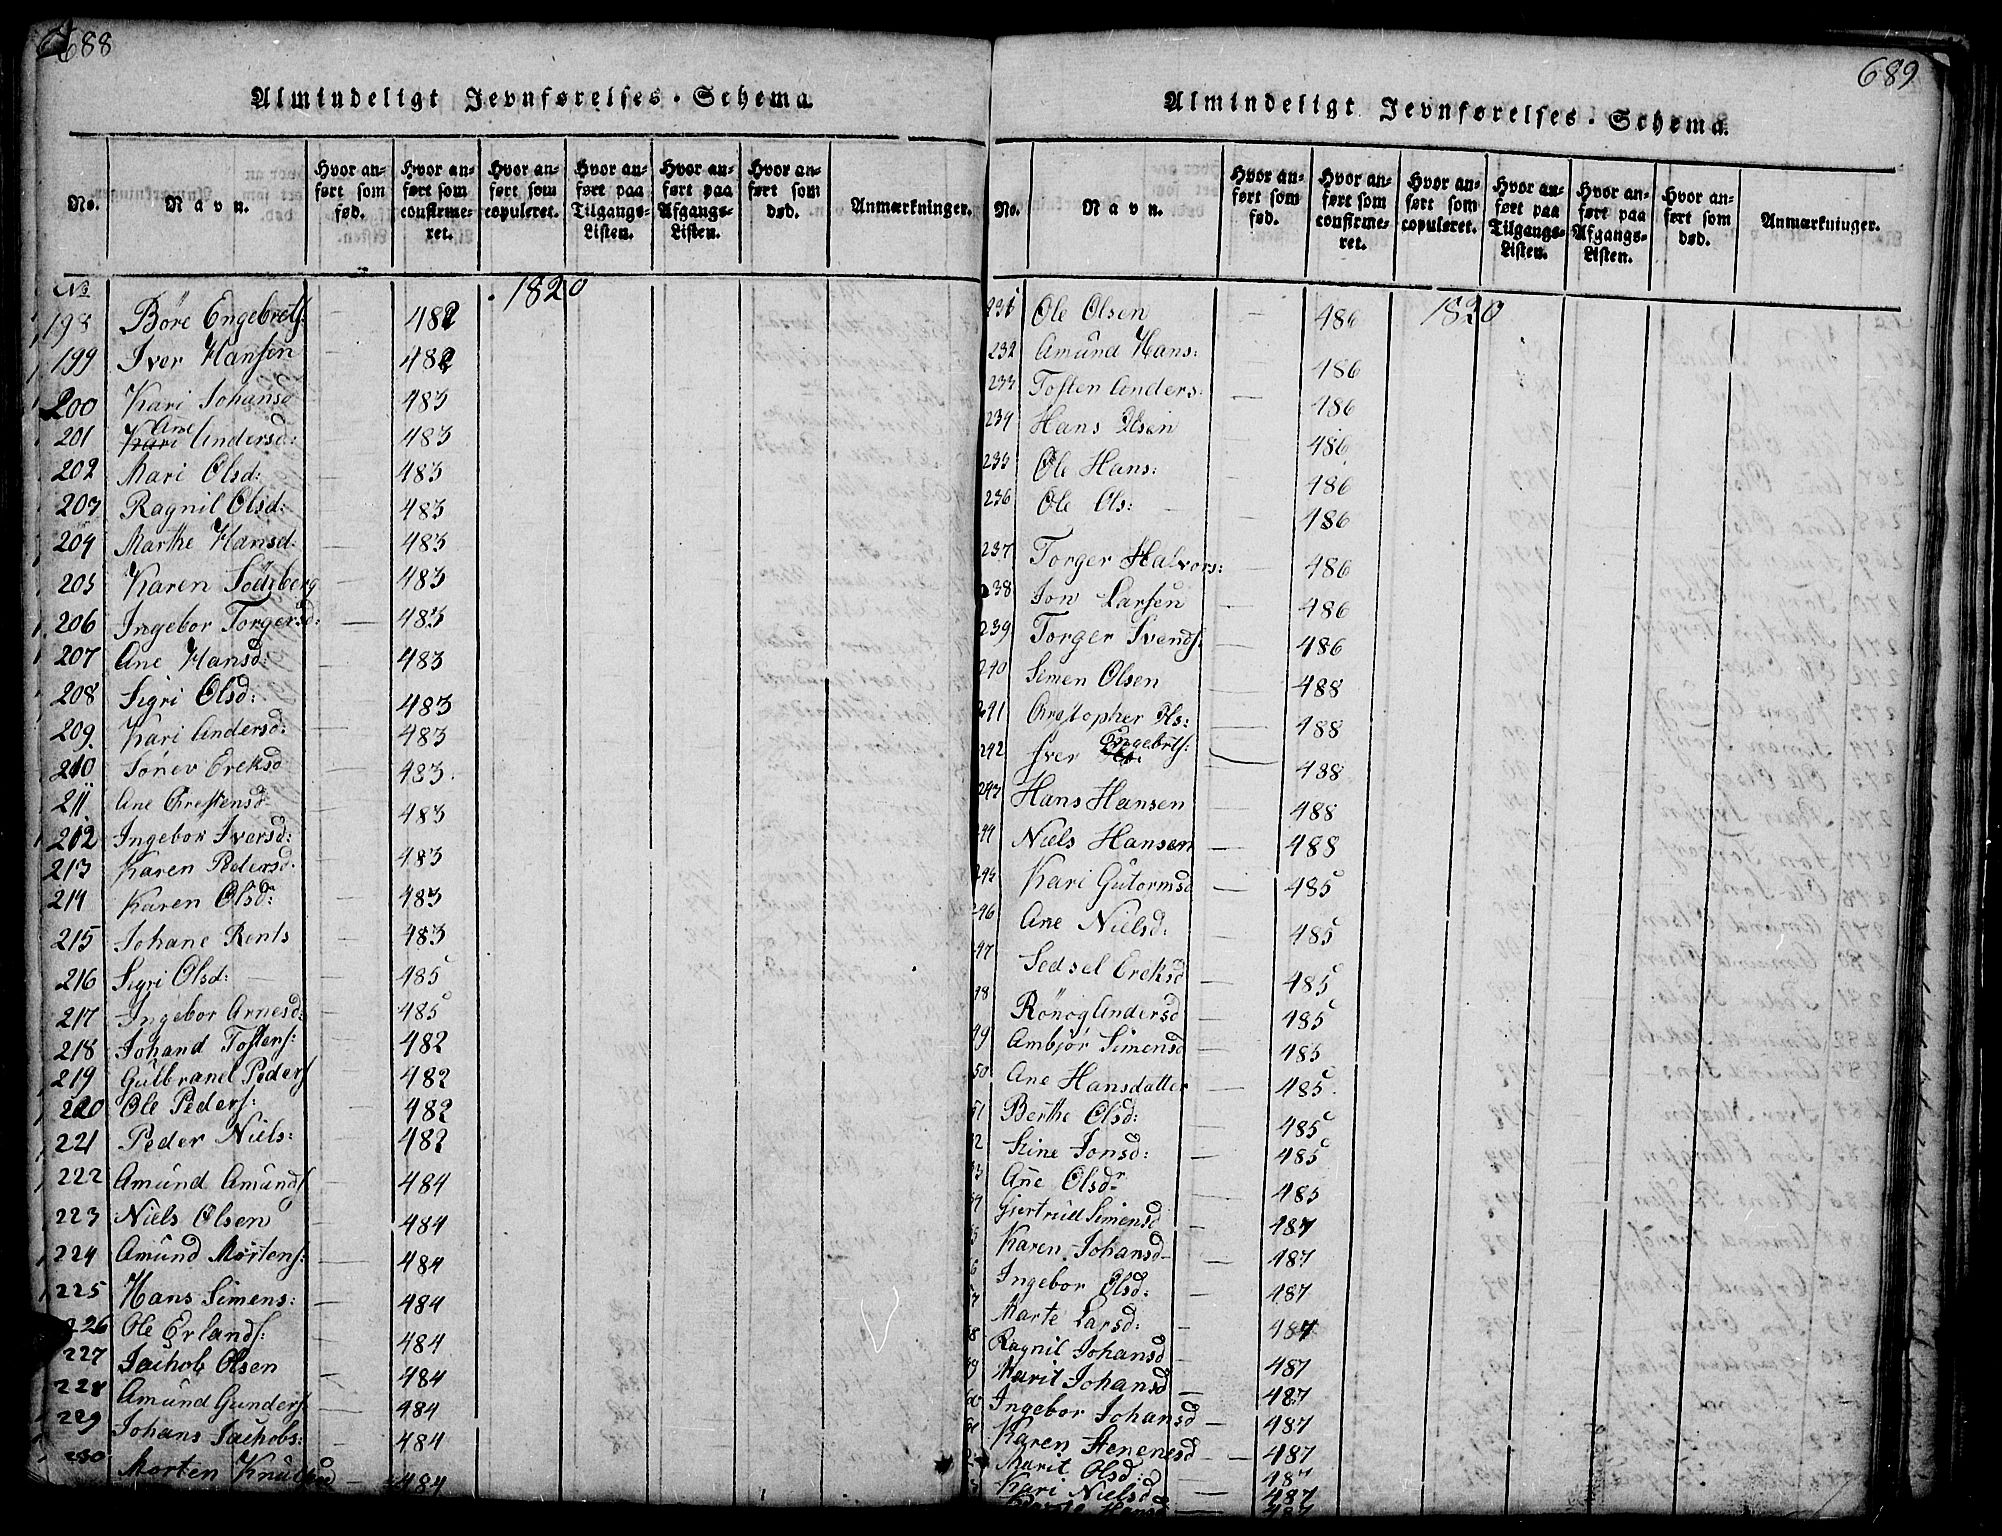 688
Almindeligt Jevnførelses-Schema.
No.
Navn.
Hvor anført som fød.
Hvor anført som confirmeret.
Hvor anført som copuleret.
Hvor anført paa Tilgangs-Listen.
Hvor anført paa Afgangs-Listen.
Hvor anført som død.
Anmærkninger.
No 1820
198 Böre Engebrets: 482
199 Iver Hansen 482
200 Kari Johansd 483
201 Kari Ane Andersd: 483
202 Mari Olsd: 483
203 Ragnil Olsd: 483
204 Marthe Hansd: 483
205 Karen Södtberg 483
206 Ingebor Torgersd: 483
207 Ane Hansd: 483
208 Sigri Olsd: 483
209. Kari Andersd: 483
210 Sønev Ereksd 483.
211 Ane Chrestensd 483
212 Ingebor Iversd:
213 Karen Pedersd: 483
214 Karen Olsd: 483
215 Johane Rents 483
216 Sigri Olsd: 485
217 Ingebor Arnesd: 485
218 Johand Tostens: 482
219 Gulbrand Peders 482
220 Ole Peders: 482
221 Peder Niels: 482
222 Amund Amunds 484
223 Niels Olsen 484
224 Amund Mortens: 484
225 Hans Simens: 484
226 Ole Erlands: 484
227 Jachob Olsen 484
228 Amund Gunders 484
229 Johans Jachobs: 484
230 Morten 484
689
Almindeligt Jevnførelses-Schema.
No.
Navn.
Hvor anført som fød.
Hvor anført som confirmeret.
Hvor anført som copuleret.
Hvor anført paa Tilgangs-Listen.
Hvor anført paa Afgangs-Listen.
Hvor anført som død.
Anmærkninger.
231 Ole Olsen 486 1820
232 Amund Hans: 486
233 Tosten Anders: 486
234 Hans Olsen 486
235 Ole Hans: 486
236 Ole Ols: 486
237 Torger Halvors: 486
238 Jon Larsen 486
239 Torger Svends: 486
240 Simen Olsen 488
241 Chrstopher Ols: 488
242 Iver Engebrts: 488
243 Hans Hansen 488
244 Niels Hansen 488
245 Kari Gutormsd 485
246 Ane Nielsd: 485
47 Sedsel Ereksd 485
48 Rönog Andersd 485
49 Ambjör Simensd 485
50 Ane Hansdatter 485.
51 Berthe Olsd: 485
52 Kine Jonsd: 485
53 Ane Olsdr 485
54 Giertrud Simensd 487
5 Karen Johansd 487
6 Ingebor Olsd: 487
7 Marte Larsd: 487
8 Ragnil Johansd 487
9 Marit Johansd 487
60 Ingebor Johansd 487
61 Karen Stenensd 487
2 Marit Olsd: 487
3 Kari Nielsd 487
Hansd 487